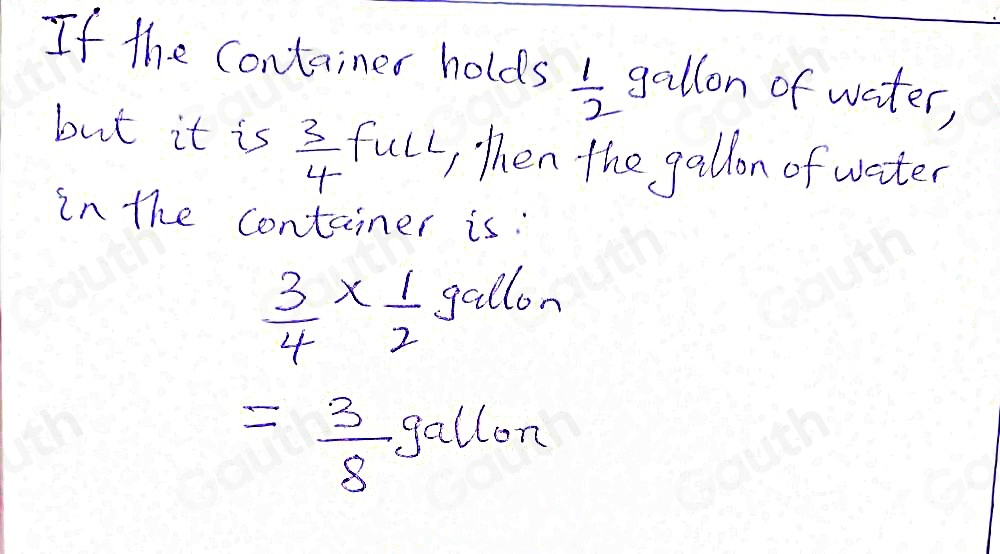 If the container holds 1/2 gallon of water,
but it is 3/4 full, then the gallon of water
in the container is:
3/4 × 1/2 gallon
= 3/8 gallon
Gauth